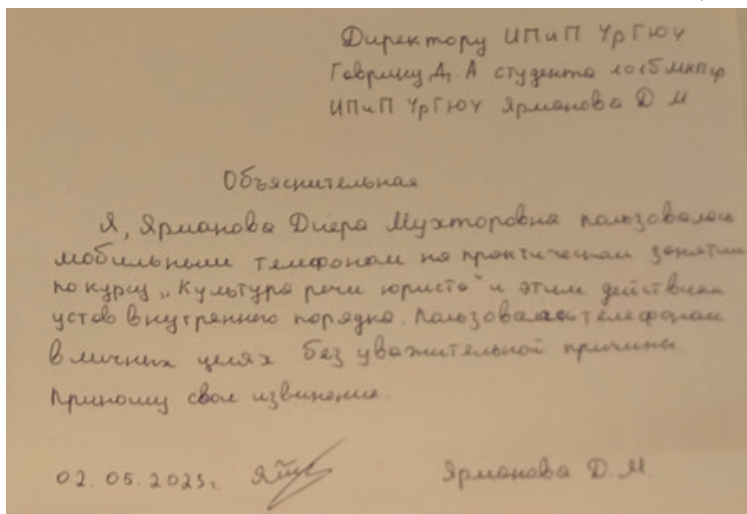 Директору ИПиП УрГЮУ
Гаврицу Д. А студента
ИПиП УрГЮУ Ярманова Д. М
Объяснительная
Я, Ярманова Диера Мухторовна пользовалась
мобильным телефоном на практическом занятии
по курсу „Культура речи юриста" и этим действием
устав внутреннего порядка. Пользовалась телефоном
в личных целях без уважительной причины.
Приношу свои извинение.
02. 05. 2023г. Ярманова Д. М